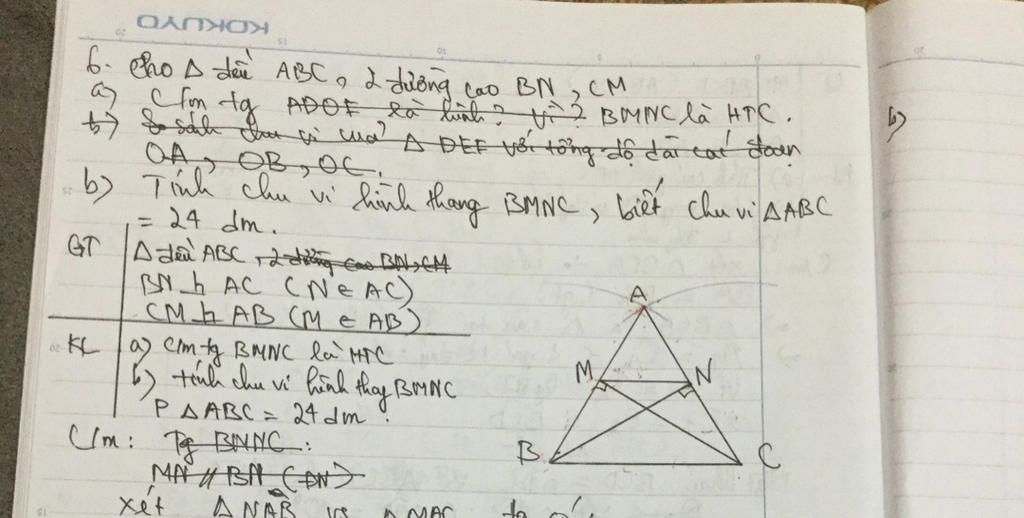 KOKUYO
6. Cho Δ đều ABC, 2 đường cao BN, CM
a) C/m tg ADOF là hình? Vì? BMNC là HTC.
b) So sánh chu vi của Δ DEF với tổng độ dài các đoạn
OA, OB, OC.
b) Tính chu vi hình thang BMNC, biết chu vi ΔABC
= 24 dm.
GT Δ đều ABC, 2 đường cao BN, CM
BN ⊥ AC (N ∈ AC)
CM ⊥ AB (M ∈ AB)
KL a) C/m tg BMNC là HTC
b) tính chu vi hình thag BMNC
P Δ ABC = 24 dm.
C/m: Tg BMNC:
MN // BN (ĐN)
xét Δ NAB và Δ MAC ta có:
A
M N
B C
b)